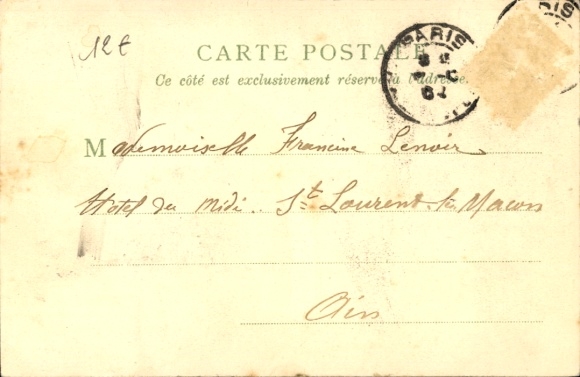 12€
CARTE POSTALE
Ce côté est exclusivement réservé à l'adresse.
PARIS
Mademoiselle Francine Lenoir
Hotel du Midi. St Laurent-les Macon
Ain